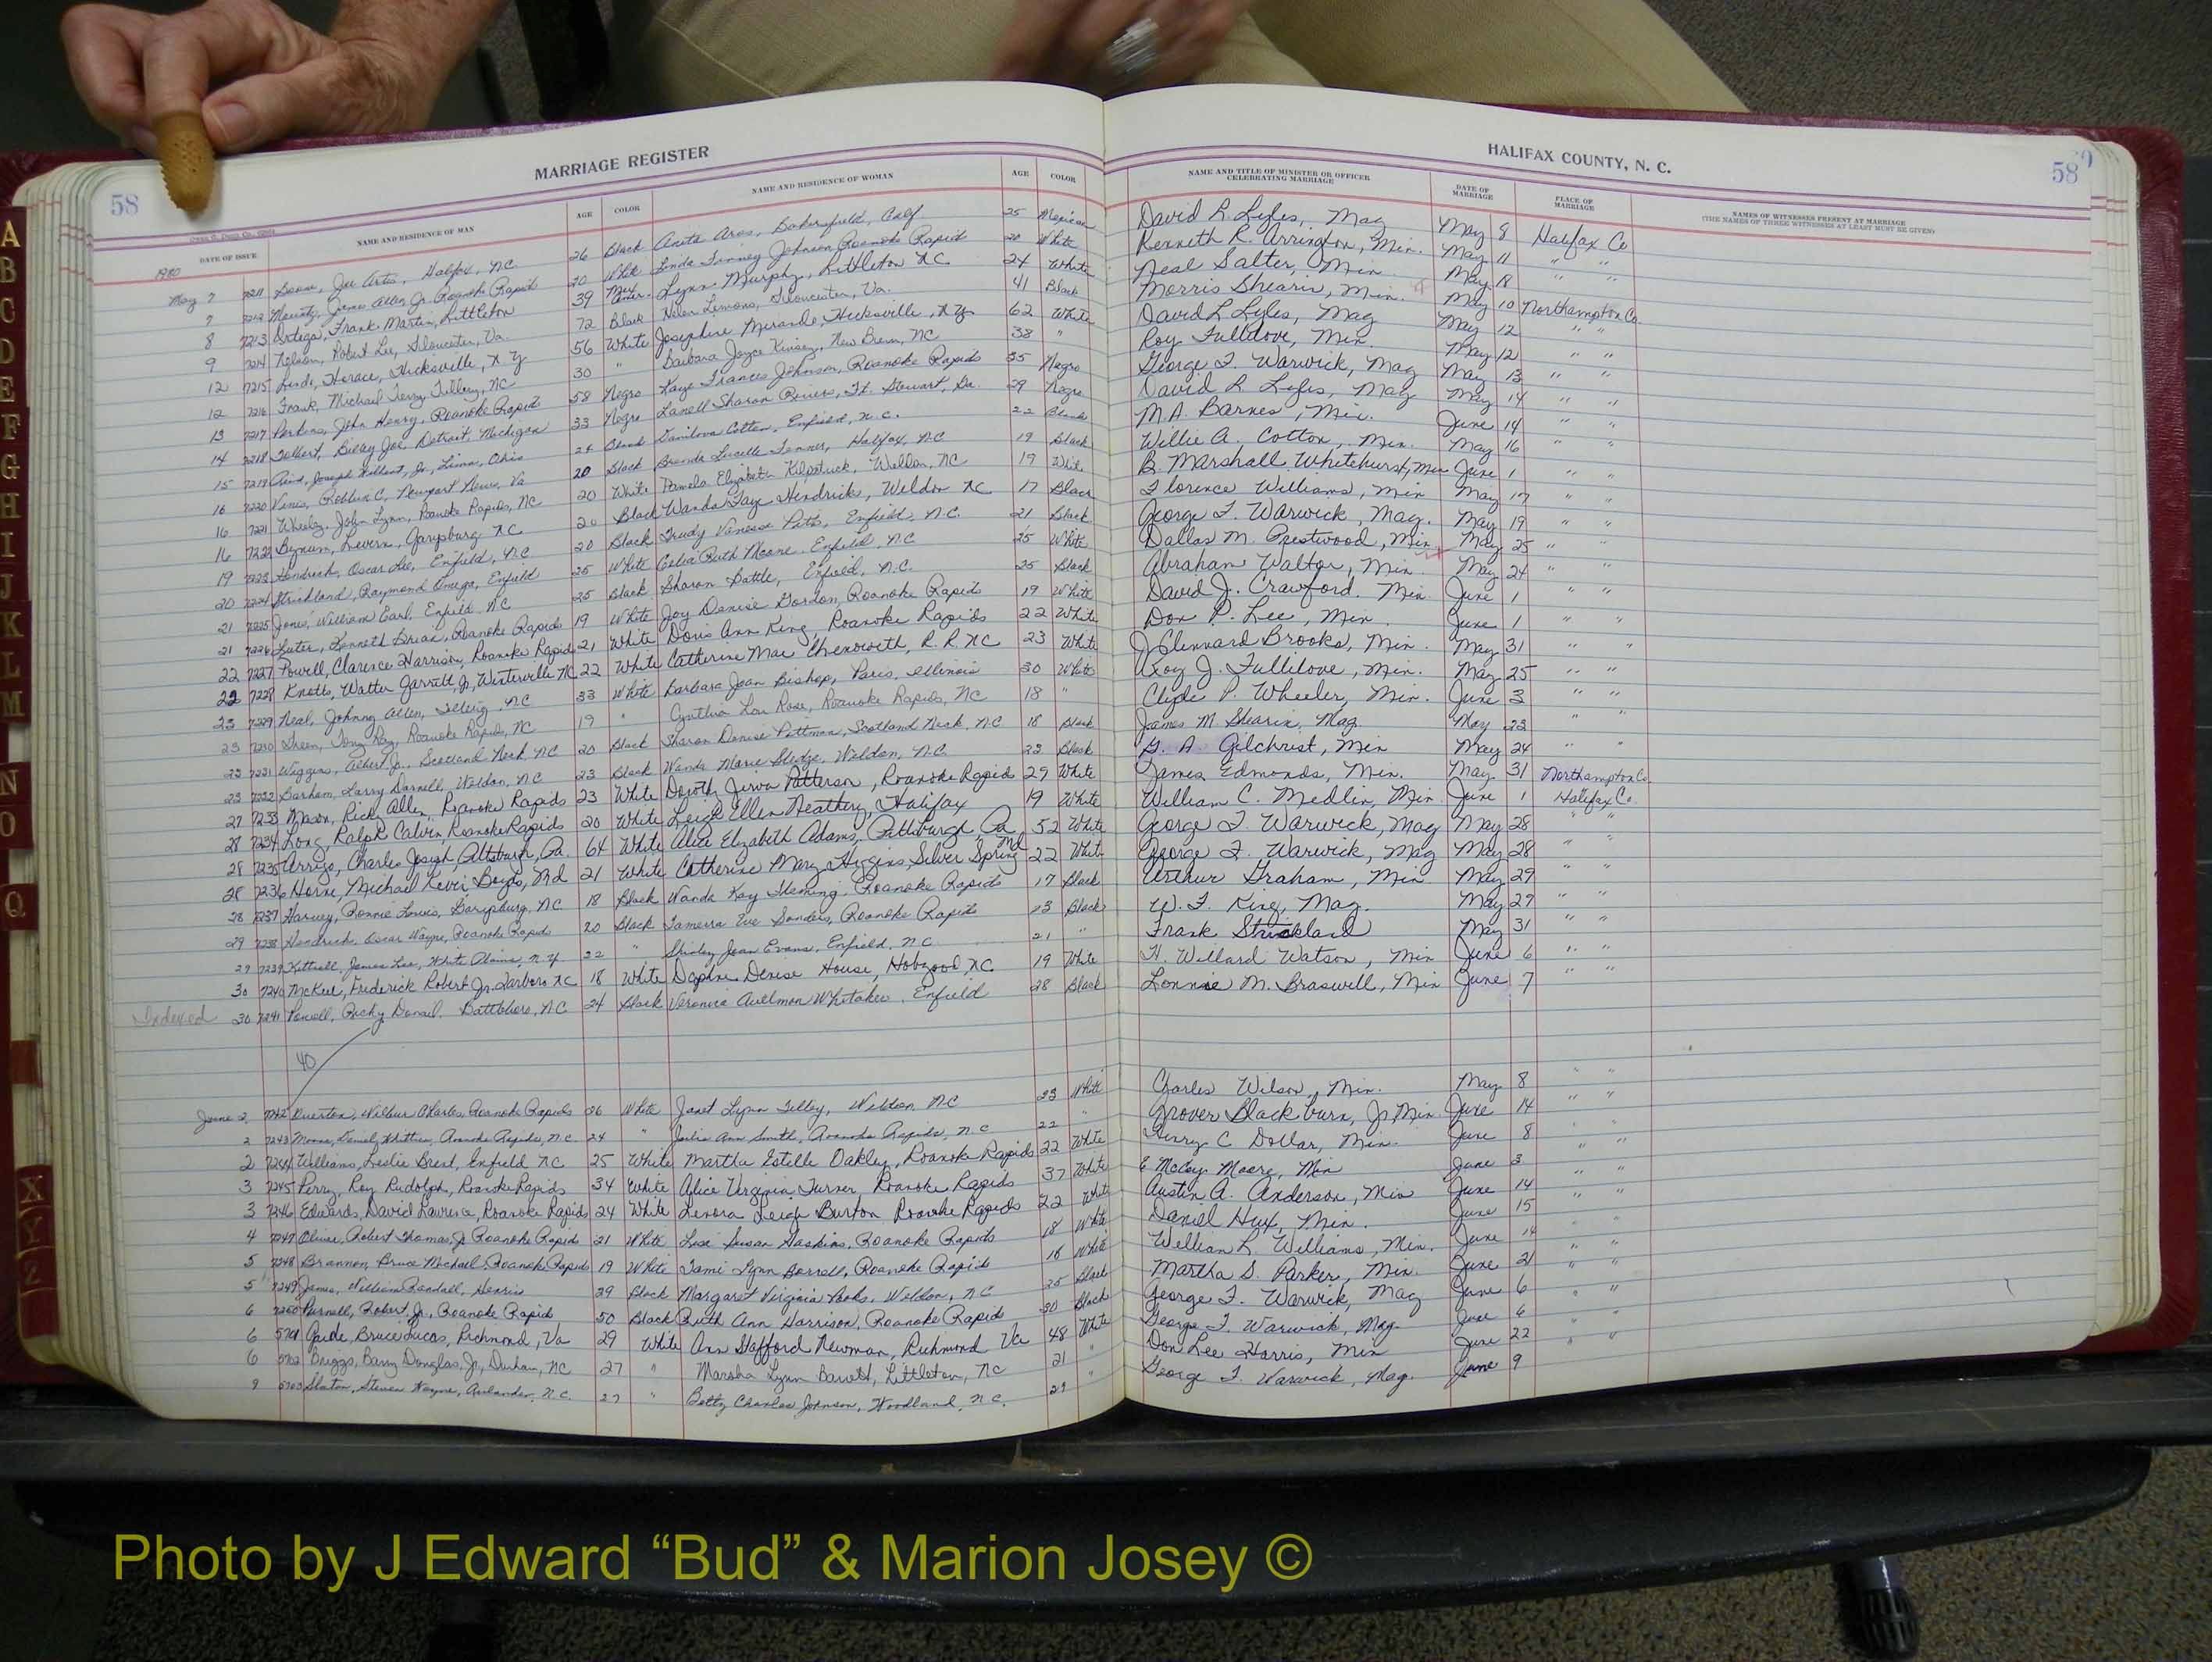 58
MARRIAGE REGISTER
DATE OF ISSUE NAME AND RESIDENCE OF MAN AGE COLOR NAME AND RESIDENCE OF WOMAN AGE COLOR
1980
May 7 7211 Boone, Joe Artis, Halifax, NC 26 Black Anita Aros, Bakersfield, Calf. 25 Mexican
7 7212 James Allen Jr. Roanoke Rapids 20 White Linda Johnson, Roanoke Rapids 20 White
8 7213 Ortega, Frank Martin, Littleton 39 Lynn Murphy, Littleton NC 24 White
9 7214 Nelson, Robert Lee, Gloucester, Va. 72 Black Helen Lemons, Gloucester, Va. 41 Black
12 7215 Horace, Hicksville, N Y 56 White Josephine Miranda, Hicksville, N.Y. 62 White
12 7216 Frank, Michael Terry Tillery, NC 30 " Barbara Joyce Kinsey, New Bern, NC 38 "
13 7217 Perkins, John Henry, Roanoke Rapids 58 Negro Faye Frances Johnson, Roanoke Rapids 35 Negro
14 7218 Tolbert, Billy Joe Detroit, Michigan 33 Negro Sharon Ft. Stewart, Ga. 29 Negro
15 7219 Joseph Jr, Lima, Ohio 24 Black Cotton, Enfield, N.C. 22 Black
16 7220 Newport News, Va 20 Black Brenda Lucille Halifax, NC 19 Black
16 7221 Wheeler, John Lynn, Roanoke Rapids, NC 20 White Pamela Elizabeth Kilpatrick, Weldon, NC 19 White
16 7222 Bynum, Levern, Garysburg NC 20 Black Wanda Faye Hendrick, Weldon NC 17 Black
19 7223 Hendrick, Oscar Lee, Enfield, NC 20 Black Trudy Vanessa Pitts, Enfield, N.C. 21 Black
20 7224 Strickland, Raymond Omega, Enfield 25 White Celia Ruth Moore, Enfield, NC 25 White
21 7225 Jones, William Earl, Enfield NC 25 Black Sharon Battle, Enfield, N.C. 25 Black
21 7226 Luter, Kenneth Brian, Roanoke Rapids 19 White Joy Denise Gordon, Roanoke Rapids 19 White
22 7227 Powell, Clarence Harrison, Roanoke Rapids 21 White Doris Ann King, Roanoke Rapids 22 White
22 7228 Knotts, Walter Jarrett, Jr, Winterville NC 22 White Catherine Mae Chenoweth, R.R. NC 23 White
23 7229 Neal, Johnny Allen, NC 33 White Barbara Jean Bishop, Paris, Illinois 30 White
23 7230 Green, Tony Ray, Roanoke Rapids, NC 19 " Cynthia Lou Rose, Roanoke Rapids, NC 18 "
23 7231 Wiggins, Albert Jr., Scotland Neck NC 20 Black Sharon Denise Pittman, Scotland Neck, NC 18 Black
23 7232 Barham, Larry Darnell, Weldon, NC 23 Black Wanda Marie Sledge, Weldon, N.C. 23 Black
27 7233 Mason, Ricky Allen, Roanoke Rapids 23 White Dorothy Patterson, Roanoke Rapids 29 White
28 7234 Long, Ralph Calvin, Roanoke Rapids 20 White Leigh Ellen Neathery, Halifax 19 White
28 7235 Arrigo, Charles Joseph, Pittsburgh, Pa. 64 White Alice Elizabeth Adams, Pittsburgh, Pa 52 White
28 7236 Horne, Michael Kevin Boyds, Md 21 White Catherine Mary Higgins, Silver Spring Md 22 White
28 7237 Harvey, Ronnie Louis, Garysburg, NC 18 Black Wanda Kay Fleming, Roanoke Rapids 17 Black
29 7238 Hendrick, Oscar Wayne, Roanoke Rapids 20 Black Tamerra Eve Sanders, Roanoke Rapids Black
29 7239 Kittrell, James Lee, White Plains, N.Y. 22 " Shirley Jean Evans, Enfield, N.C. 21 "
30 7240 McKeel, Frederick Robert Jr. Tarboro NC 18 White Daphne Denise House, Hobgood, NC. 19 White
Indexed 30 7241 Powell, Ricky Donail, Battleboro, NC 24 Black Veronica Whitaker, Enfield 28 Black
40
June 2 7242 Wilbur Charles, Roanoke Rapids 26 White Janet Lynn Tilley, Weldon, NC 23 White
2 7243 Moore, Daniel Whitten, Roanoke Rapids, N.C. 24 " Julia Ann Smith, Roanoke Rapids, N.C 22 "
2 7244 Williams, Leslie Brent, Enfield NC 25 White Martha Estelle Oakley, Roanoke Rapids 22 White
3 7245 Perry, Roy Rudolph, Roanoke Rapids 34 White Alice Virginia Turner, Roanoke Rapids 37 White
3 7246 Edwards, David Lawrence, Roanoke Rapids 24 White Lenora Leigh Burton Roanoke Rapids 22 White
4 7247 Oliver, Robert Thomas, Jr Roanoke Rapids 21 White Lisa Susan Haskins, Roanoke Rapids 18 White
5 7248 Brannon, Bruce Michael, Roanoke Rapids 19 White Tami Lynn Roanoke Rapids 18 White
5 7249 James, William Randall, 29 Black Margaret Virginia Weldon, NC 25 Black
6 7250 Purnell, Robert Jr, Roanoke Rapid 50 Black Ruth Ann Harrison, Roanoke Rapids 30 Black
6 5701 Bruce Lucas, Richmond, Va 29 White Ann Stafford Newman, Richmond Va 48 White
6 5702 Briggs, Barry Douglas, Jr, Durham, NC 27 " Marsha Lynn Barrett, Littleton, NC 21 "
9 5703 Slaton, Steven Wayne, Aulander, N.C. 27 " Betty Charles Johnson, Woodland, N.C. "
HALIFAX COUNTY, N. C.
58
NAME AND TITLE OF MINISTER OR OFFICER CELEBRATING MARRIAGE DATE OF MARRIAGE PLACE OF MARRIAGE NAMES OF WITNESSES PRESENT AT MARRIAGE (THE NAMES OF THREE WITNESSES AT LEAST MUST BE GIVEN)
David R. Lyles, Mag May 8 Halifax Co
Kenneth R. Arrington, Min. May 11 " "
Neal Salter, Min May 18 " "
Morris Shearin, Min. May 10 Northampton Co.
David L Lyles, Mag May 12 " "
Roy Fullilove, Min. May 12 " "
George T. Warwick, Mag May 13 " "
David R Lyles, Mag May 14 " "
M.A. Barnes, Min. June 14 " "
Willie A. Cotton, Min. May 16 " "
B. Marshall Whitehurst, Min June 1 " "
Florence Williams, Min May 17 " "
George T. Warwick, Mag. May 19 " "
Dallas M. Prestwood, Min May 25 " "
Abraham Walton, Min. May 24 " "
David J. Crawford, Min. June 1 " "
Don P. Lee, Min. June 1 " "
J Clennard Brooks, Min. May 31 " "
Roy J. Fullilove, Min. May 25 " "
Clyde P. Wheeler, Min. June 3 " "
James M Shearin, Mag. May 23 " "
G. A Gilchrist, Min May 24 " "
James Edmonds, Min. May 31 Northampton Co.
William C. Medlin, Min June 1 Halifax Co.
George T. Warwick, Mag May 28 " "
George T. Warwick, Mag May 28 " "
Arthur Graham, Min May 29 " "
W. T. King, Mag. May 29 " "
Frank Strickland May 31 " "
H. Willard Watson, Min June 6 " "
Lonnie M. Braswell, Min June 7 " "
Charles Wilson, Min. May 8 " "
Grover Blackburn, Jr, Min. June 14 " "
C Dollar, Min. June 8 " "
E McCoy Moore, Min June 3 " "
Austin A. Anderson, Min June 14 " "
Daniel Hux, Min. June 15 " "
William L. Williams, Min. June 14 " "
Martha S. Parker, Min. June 21 " "
George T. Warwick, Mag June 6 " "
George T. Warwick, Mag. June 6 " "
Don Lee Harris, Min June 22 " "
George T. Warwick, Mag. June 9
A
B
C
D
E
F
G
H
I
J
K
L
M
N
O
Q
X
Y
Z
Photo by J Edward “Bud” & Marion Josey ©